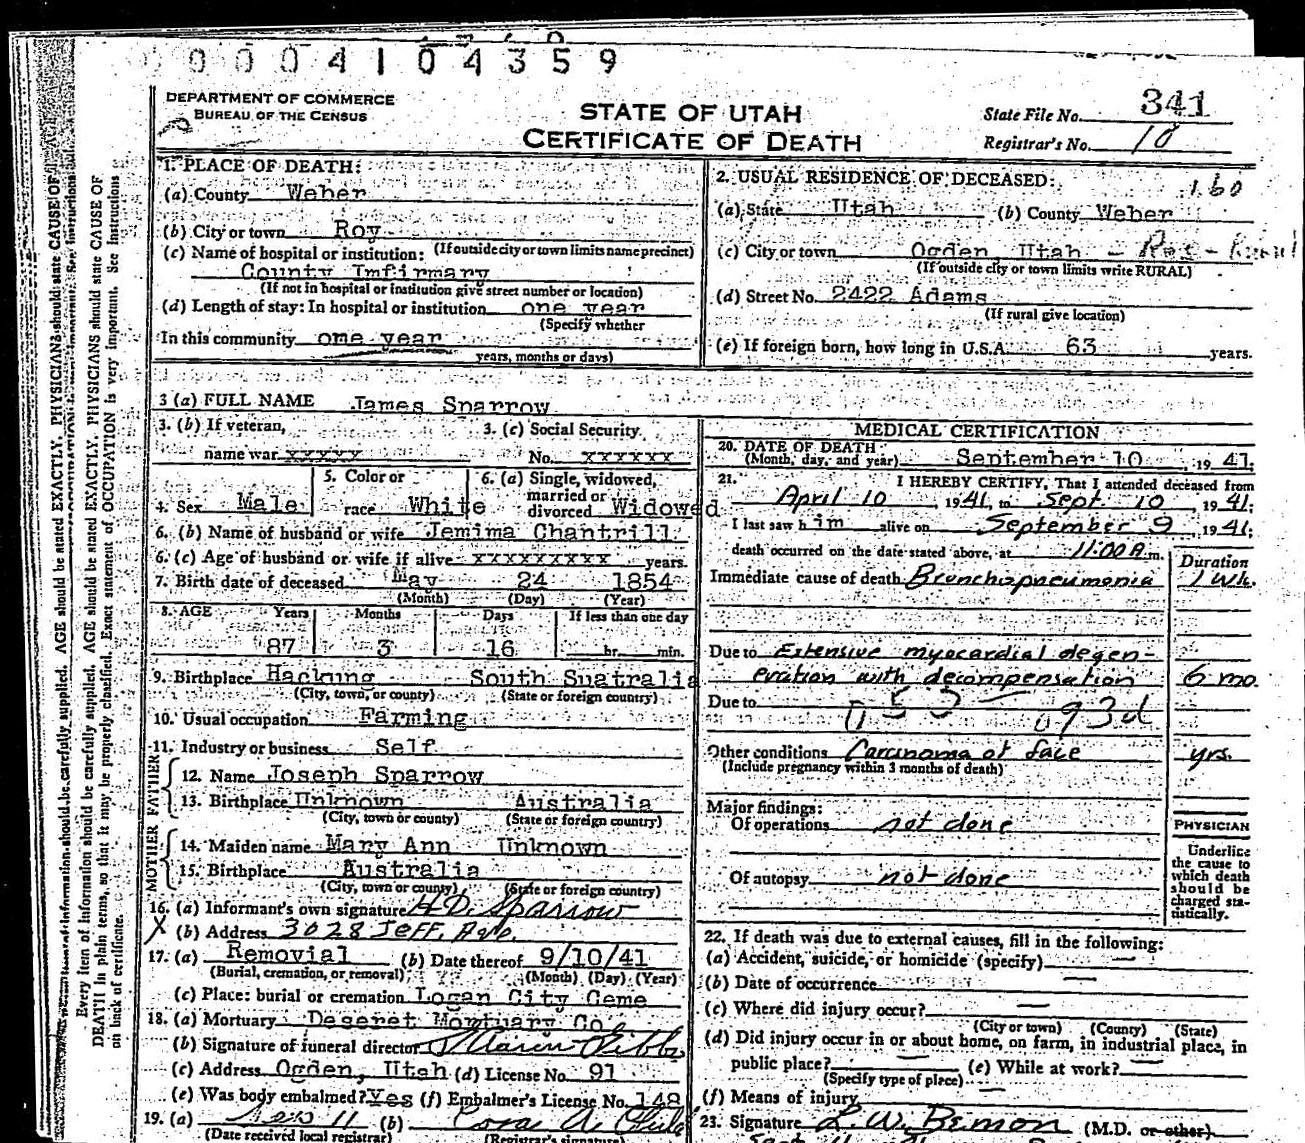 0004104359
DEPARTMENT OF COMMERCE
BUREAU OF THE CENSUS
STATE OF UTAH
CERTIFICATE OF DEATH
State File No. 341
Registrar's No. 18
1. PLACE OF DEATH:
(a) County Weber
(b) City or town Roy
(If outside city or town limits name precinct)
(c) Name of hospital or institution:
County Imfirmary
(If not in hospital or institution give street number or location)
(d) Length of stay: In hospital or institution one year
(Specify whether
In this community one year
years, months or days)
2. USUAL RESIDENCE OF DECEASED: 160
(a) State Utah (b) County Weber
(c) City or town Ogden Utah - Res - Rural
(If outside city or town limits write RURAL)
(d) Street No. 2422 Adams
(If rural give location)
(e) If foreign born, how long in U.S.A. 63 years.
3 (a) FULL NAME James Sparrow
3. (b) If veteran, 3. (c) Social Security
name war xxxxx No. xxxxxx
4. Sex Male 5. Color or race White 6. (a) Single, widowed, married or divorced Widowed
6. (b) Name of husband or wife Jemima Chantrill
6. (c) Age of husband or wife if alive xxxxxxxxx years.
7. Birth date of deceased May 24 1854
(Month) (Day) (Year)
8. AGE Years Months Days If less than one day
87 3 16 hr. min.
9. Birthplace Hackung South Suatralia
(City, town, or county) (State or foreign country)
10. Usual occupation Farming
11. Industry or business Self
FATHER
12. Name Joseph Sparrow
13. Birthplace Unknown Australia
(City, town or county) (State or foreign country)
MOTHER
14. Maiden name Mary Ann Unknown
15. Birthplace Australia
(City, town or county) (State or foreign country)
16. (a) Informant's own signature H.D. Sparrow
X (b) Address 3028 Jeff. Ave.
17. (a) Removial (b) Date thereof 9/10/41
(Burial, cremation, or removal) (Month) (Day) (Year)
(c) Place: burial or cremation Logan City Ceme
18. (a) Mortuary Deseret Mortuary Co
(b) Signature of funeral director
(c) Address Ogden, Utah (d) License No. 91
(e) Was body embalmed? Yes (f) Embalmer's License No. 148
19. (a) 11 (b)
(Date received local registrar) (Registrar's signature)
MEDICAL CERTIFICATION
20. DATE OF DEATH
(Month, day, and year) September 10, 1941;
21. I HEREBY CERTIFY, That I attended deceased from
April 10 1941, to Sept. 10, 1941;
I last saw him alive on September 9, 1941;
death occurred on the date stated above, at 11:00 A.m.
Duration
Immediate cause of death Bronchopneumonia 1 wk.
Due to Extensive myocardial degen-
eration with decompensation 6 mo.
Due to
093d
Other conditions Carcinoma of face yrs.
(Include pregnancy within 3 months of death)
Major findings:
Of operations not done
Of autopsy not done
PHYSICIAN
Underline
the cause to
which death
should be
charged sta-
tistically.
22. If death was due to external causes, fill in the following:
(a) Accident, suicide, or homicide (specify) —
(b) Date of occurrence —
(c) Where did injury occur? —
(City or town) (County) (State)
(d) Did injury occur in or about home, on farm, in industrial place, in
public place? — (e) While at work? —
(Specify type of place)
(f) Means of injury —
23. Signature (M.D. or other)
Every item of information should be carefully supplied. AGE should be stated EXACTLY. PHYSICIANS should state CAUSE OF
DEATH in plain terms, so that it may be properly classified. Exact statement of OCCUPATION is very important. See instructions
on back of certificate.